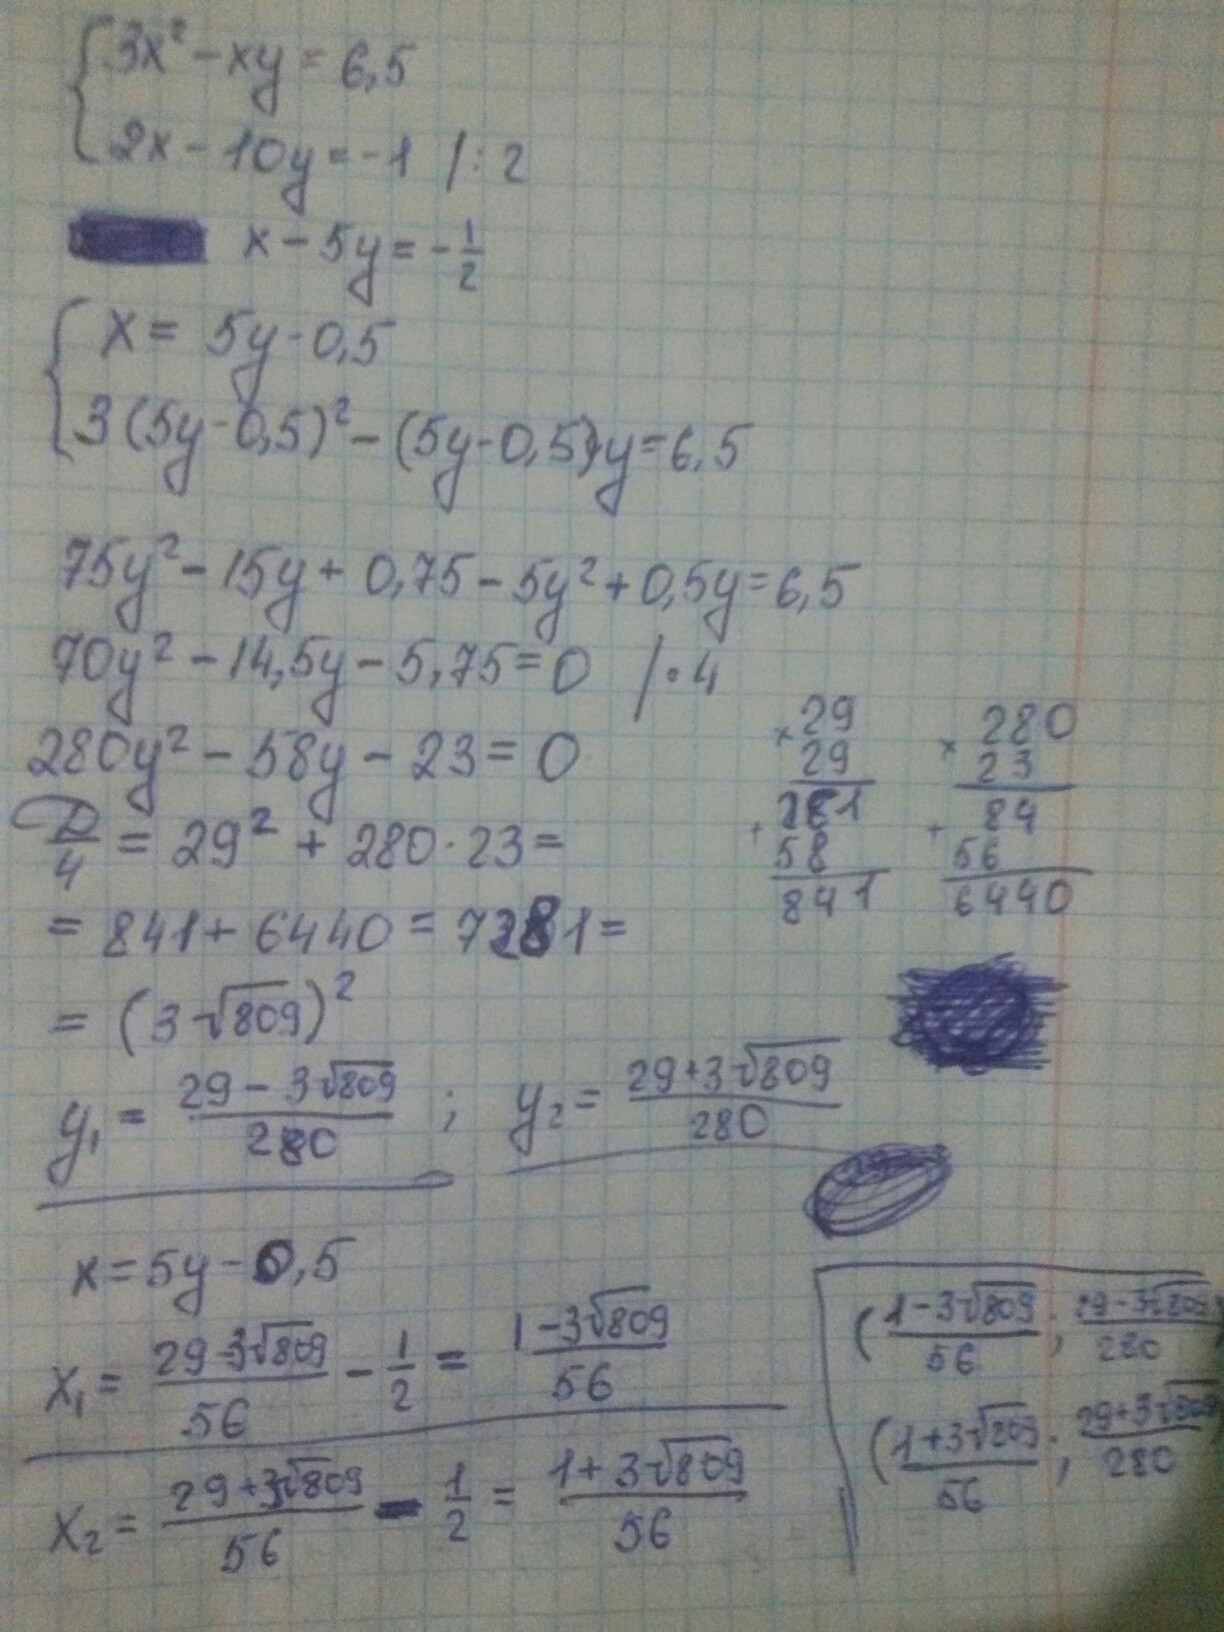 {3x² - xy = 6,5
{2x - 10y = -1 /: 2
x - 5y = -1/2
{x = 5y - 0,5
{3(5y - 0,5)² - (5y - 0,5)·y = 6,5
75y² - 15y + 0,75 - 5y² + 0,5y = 6,5
70y² - 14,5y - 5,75 = 0 /·4
280y² - 58y - 23 = 0
D/4 = 29² + 280·23 =
= 841 + 6440 = 7281 =
= (3√809)²
× 29
29
261
+ 58
841
× 280
23
84
+ 56
6440
y₁ = (29 - 3√809)/280 ; y₂ = (29 + 3√809)/280
x = 5y - 0,5
x₁ = (29 - 3√809)/56 - 1/2 = (1 - 3√809)/56
x₂ = (29 + 3√809)/56 - 1/2 = (1 + 3√809)/56
((1 - 3√809)/56 ; (29 - 3√809)/280)
((1 + 3√209)/56 ; (29 + 3√809)/280